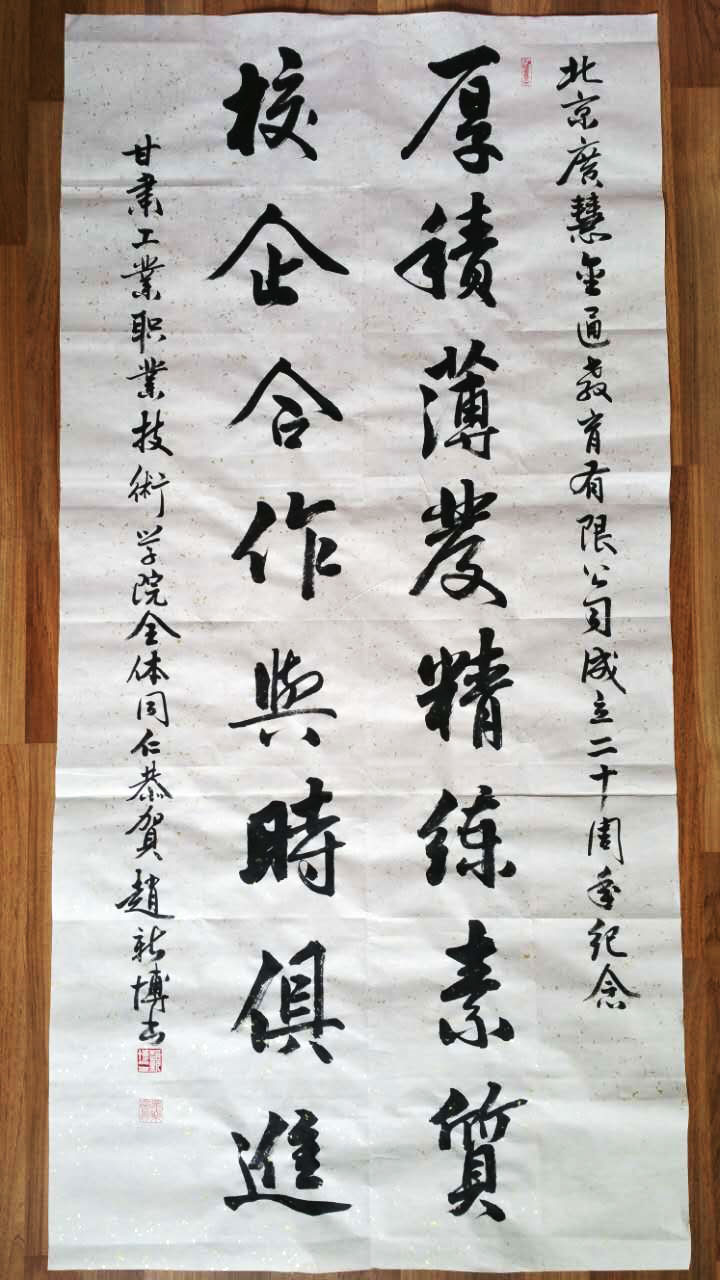 北京廣慧金通教育有限公司成立二十周年纪念
厚積薄發精练素質
校企合作與時俱進
甘肃工業职業技術学院全体同仁恭贺趙新博书